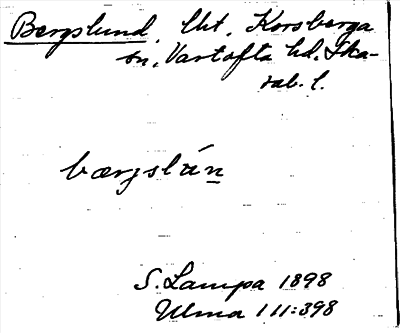 Bergslund. lht. Korsberga
sn, Vartofta hd. Ska-
rab. l.
bærgslún
S. Lampa 1898
Ulma 111:398